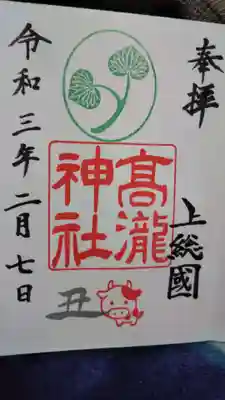 奉拝
上総國
髙瀧
神社
丑
令和三年二月七日